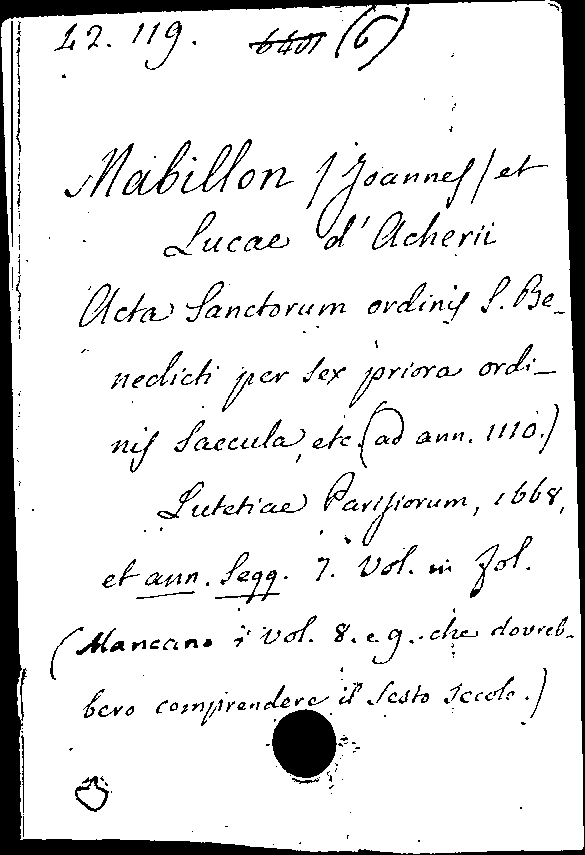 42. 119. (6)
Mabillon /Joannes/ et
Lucae d'Acherii
Acta Sanctorum ordinis S. Be-
nedicti per sex priora ordi-
nis saecula, etc. (ad ann. 1110.)
Lutetiae Parisiorum, 1668,
et ann. seqq. 7. Vol. in fol.
(Mancano i vol. 8. e 9. che dovreb-
bero comprendere il sesto secolo.)